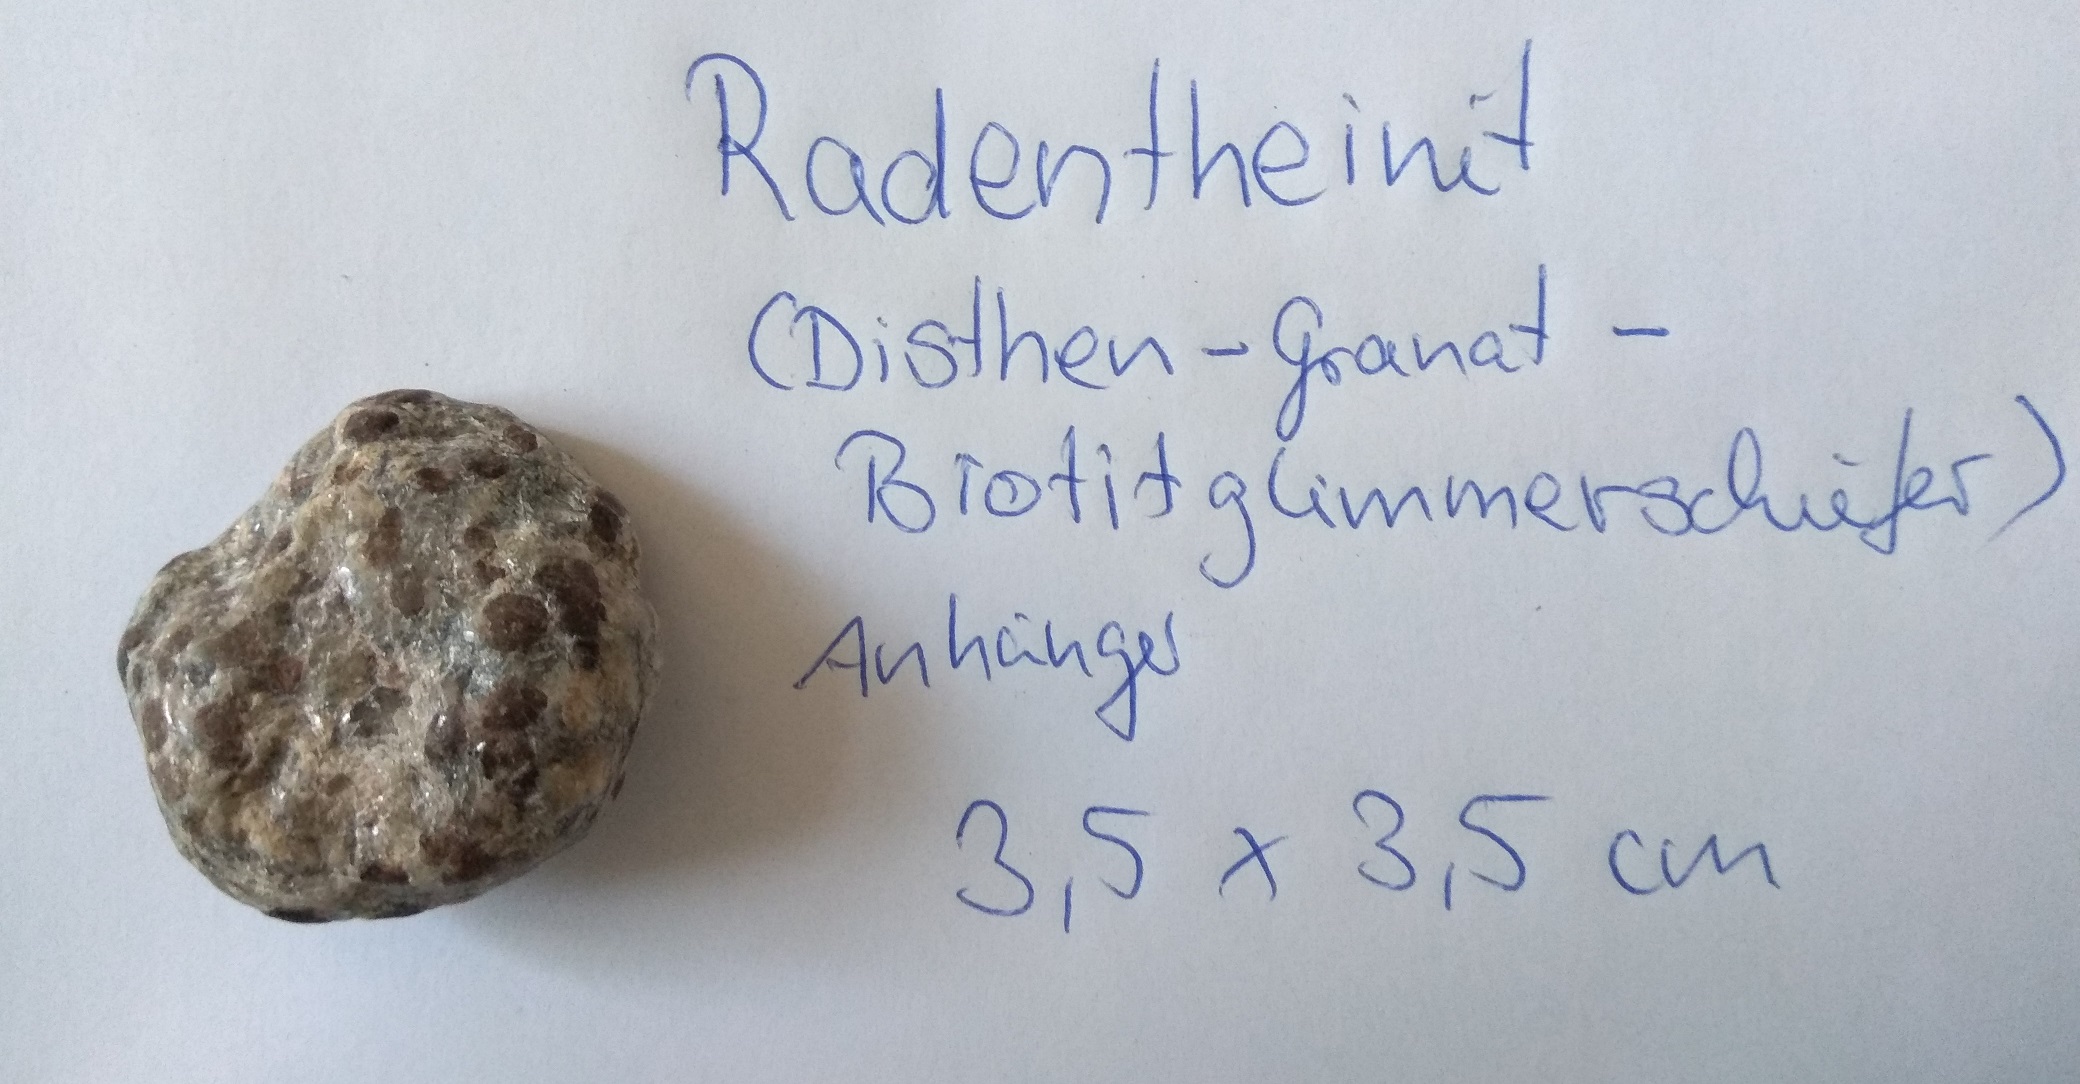 Radentheinit
(Disthen-Granat-
Biotitglimmerschiefer)
Anhänger
3,5 x 3,5 cm